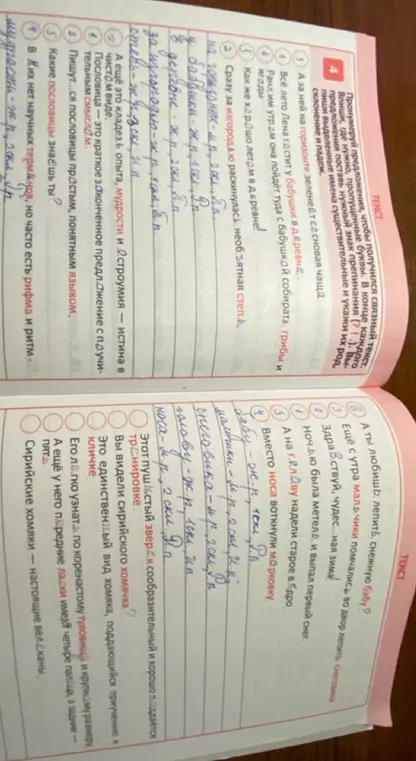 ТЕКСТ
4
Пронумеруй предложения, чтобы получился связный текст.
Впиши, где нужно, пропущенные буквы. В конце каждого
предложения поставь нужный знак препинания (? ! .). Вы-
пиши выделенные имена существительные и укажи их род,
склонение и падеж.
А за ней на горизонте зеленеет сосновая чаща
Всё лето Лена гостит у бабушки в деревне.
Ранним утром она пойдёт туда с бабушкой собирать грибы и
ягоды
Как же хорошо летом в деревне!
Сразу за изгородью раскинулась необъятная степь.
у бабушки - ж.р., 1 скл., Р.п.
в деревне - ж.р.,
за изгородью - ж.р.,
степь - ж.р., 3 скл., И.п.
А ещё это кладезь опыта, мудрости и остроумия — истина в
чистом виде.
Пословица — это краткое законченное предложение с поучи-
тельным смыслом.
Пишутся пословицы простым, понятным языком.
Какие пословицы знаешь ты?
В них нет научных терминов, но часто есть рифма и ритм.
мудрости - ж.р.,
ТЕКСТ
А ты любишь лепить снежную бабу?
Ещё с утра мальчики помчались во двор лепить снеговика
Здравствуй, чудесная зима!
Ночью была метель, и выпал первый снег.
А на голову надели старое ведро
Вместо носа воткнули морковку.
бабу - ж.р., 1 скл., В.п.
мальчики - м.р., 2 скл., И.п.
снеговика - м.р., 2 скл.,
голову - ж.р., 1 скл.,
носа - м.р., 2 скл., Р.п.
Этот пушистый зверёк сообразительный и хорошо поддаётся
тренировке
Вы видели сирийского хомячка?
Это единственный вид хомяка, поддающийся приучению к
кличке
Его легко узнать по коренастому туловищу и крупному размеру
А ещё у него передние лапки имеют четыре пальца, а задние —
пять
Сирийские хомяки — настоящие великаны.